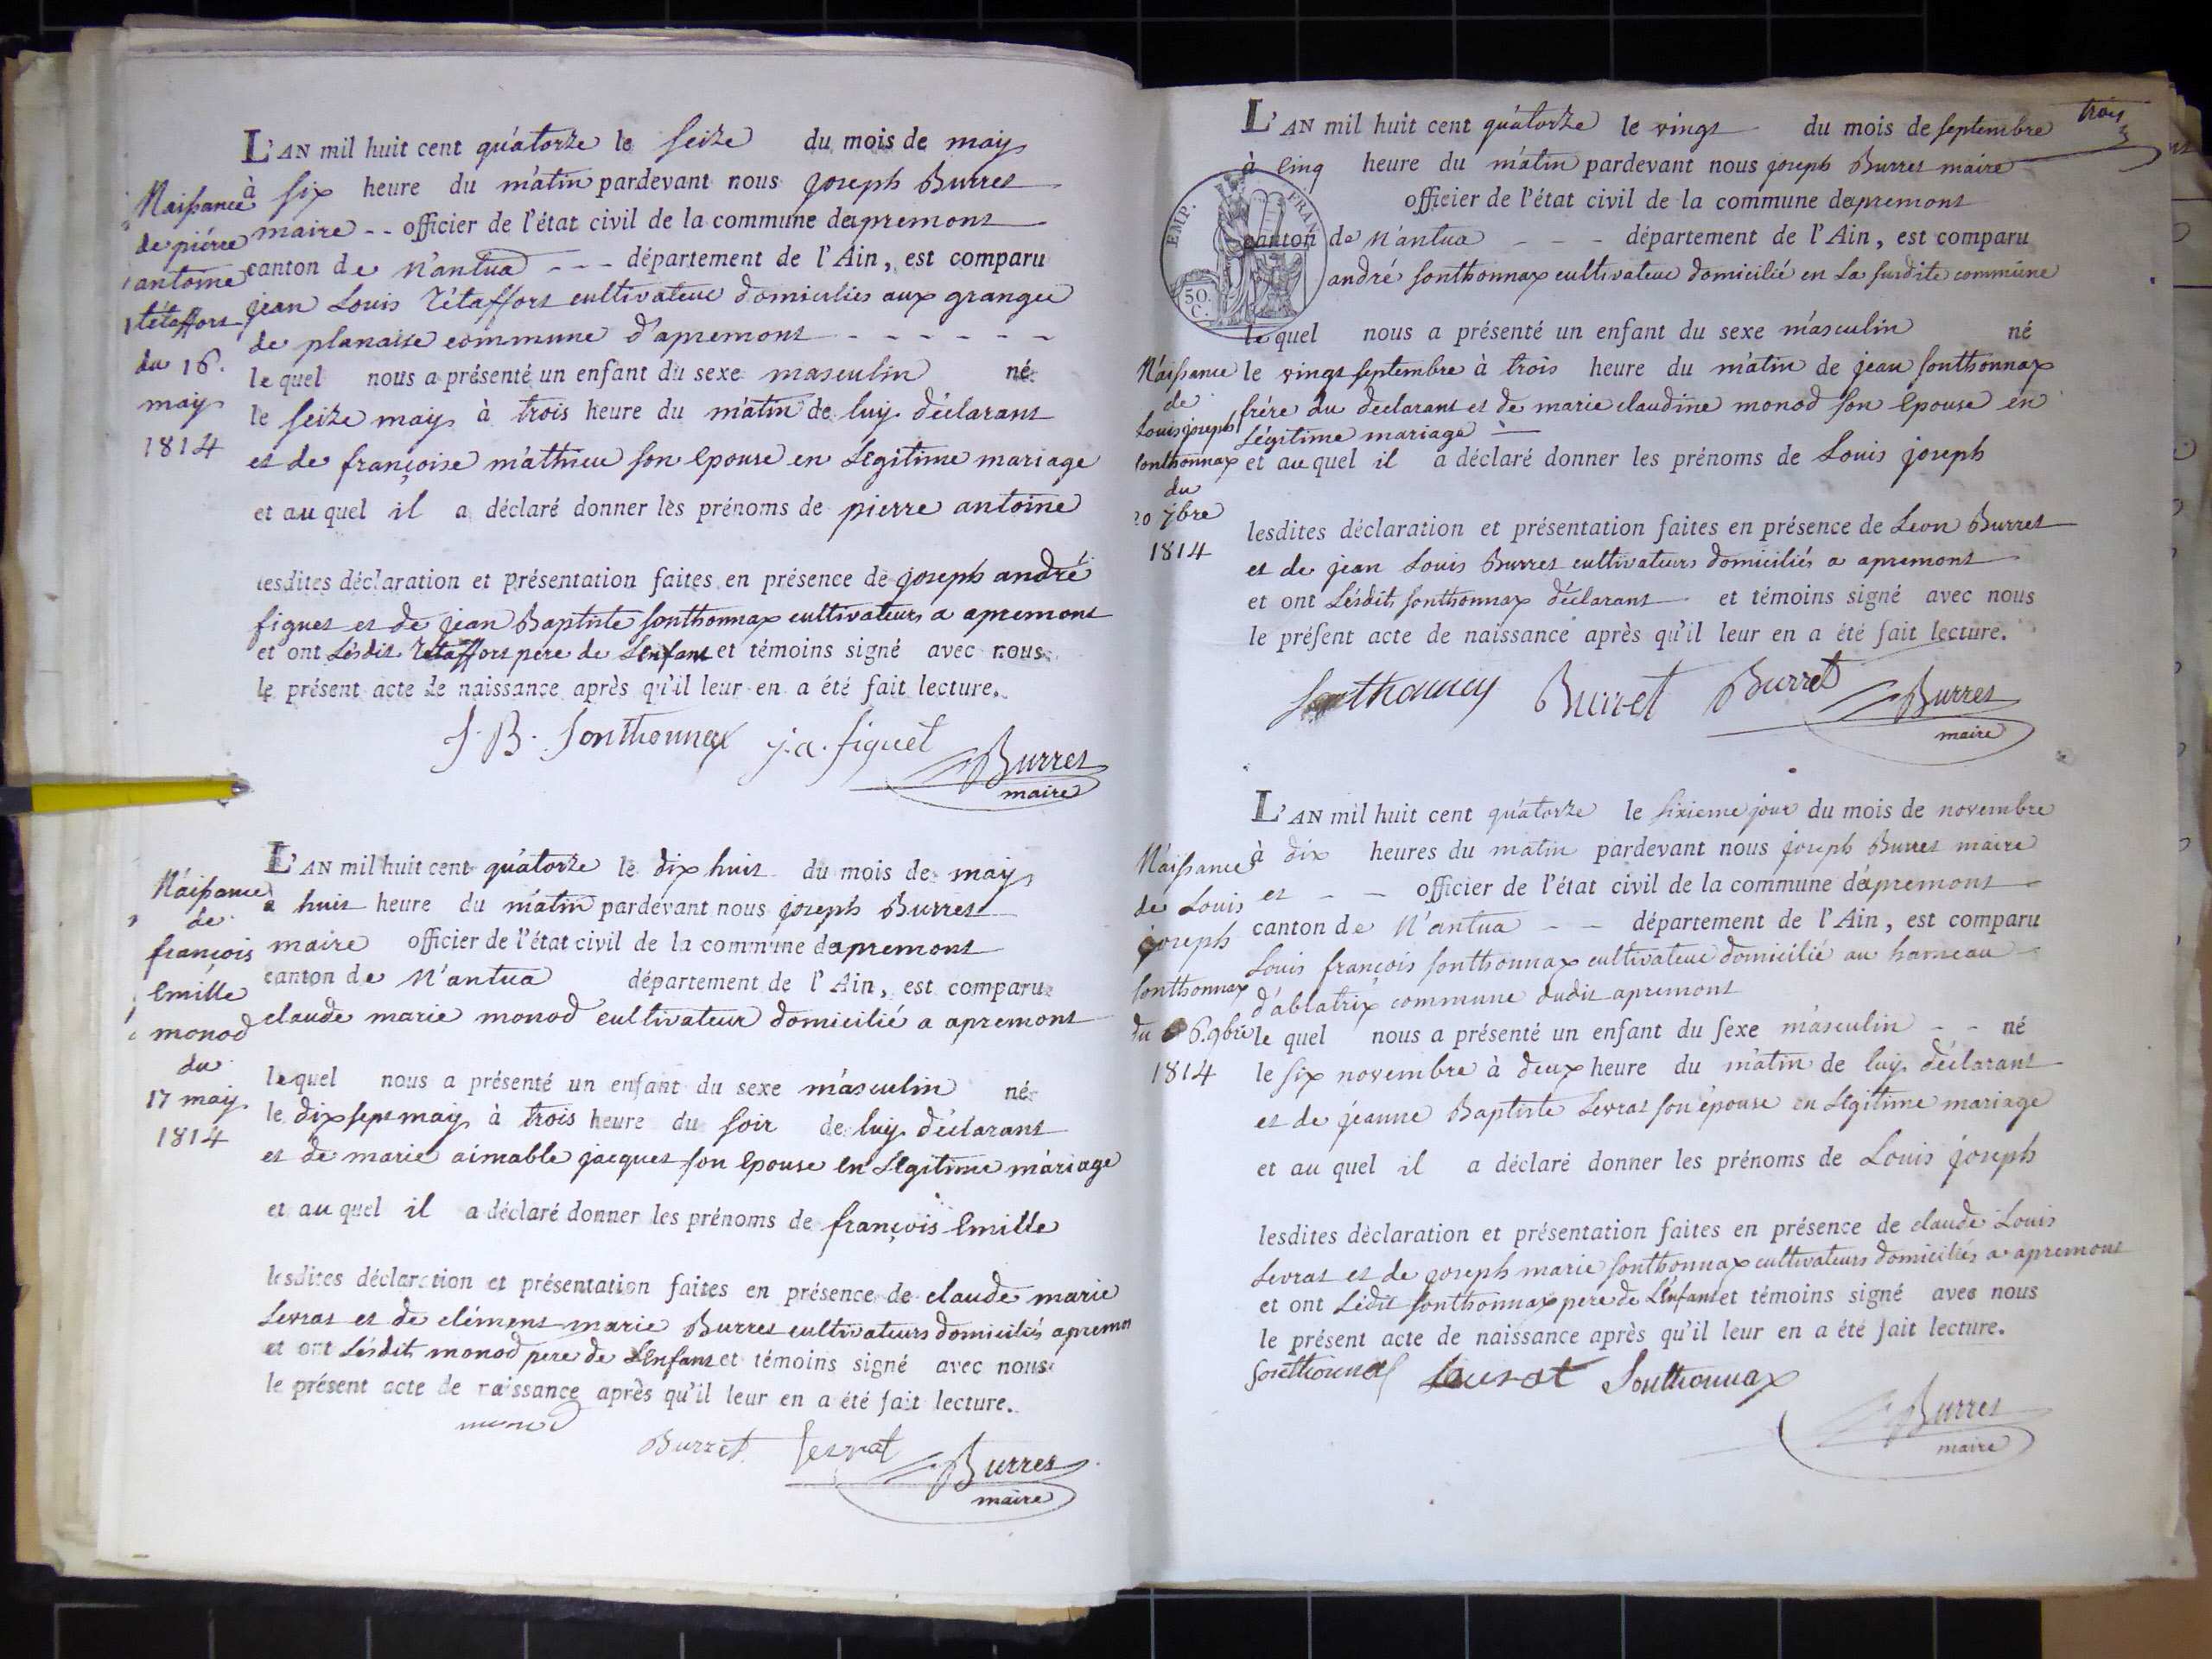 L'AN mil huit cent quátorze le seize du mois de may
à six heure du mátin pardevant nous joseph Burret
maire -- officier de l'état civil de la commune dapremont
canton de Nantua --- département de l'Ain, est comparu
jean Louis Tétaffort cultivateur domiciliés aux granges
de planaise commune d'apremont - - - - - -
le quel nous a présenté un enfant du sexe masculin né
le seize may à trois heure du mátin de luy déclarant
et de françoise máthieu son épouse en Légitime mariage
et au quel il a déclaré donner les prénoms de pierre antoine
lesdites déclaration et présentation faites en présence de joseph andré
figuet et de jean Baptiste sonthonnax cultivateurs a apremont
et ont Lésdit Tétaffort pere de L'enfant et témoins signé avec nous
le présent acte de naissance après qu'il leur en a été fait lecture.
J. B. Sonthonnax j. a. figuet
Burret
maire
Naissance
de piérre
antoine
tétaffort
du 16.
may
1814
L'AN mil huit cent quátorze le dix huit du mois de may
a huit heure du mátin pardevant nous joseph Burret
maire officier de l'état civil de la commune dapremont
canton de Nantua département de l'Ain, est comparu
claude marie monod cultivateur domicilié a apremont
le quel nous a présenté un enfant du sexe másculin né
le dix sept may à trois heure du soir de luy déclarant
et de marie aimable jacquet son épouse en Légitime máriage
et au quel il a déclaré donner les prénoms de françois Emille
lesdites déclaration et présentation faites en présence de claude marie
Levrat et de clément marie Burret cultivateurs domiciliés apremont
et ont Lésdit monod pere de L'Enfant et témoins signé avec nous
le présent acte de naissance après qu'il leur en a été fait lecture.
monod
Burret Levrat
Burret
maire
Náissance
de
françois
Emille
monod
du
17 may
1814
trois
3
L'AN mil huit cent quátorze le vingt du mois de septembre
à cinq heure du mátin pardevant nous joseph Burret maire
officier de l'état civil de la commune dapremont
canton de Nántua - - - département de l'Ain, est comparu
andré sonthonnax cultivateur domicilié en La susdite commune
le quel nous a présenté un enfant du sexe másculin né
le vingt septembre à trois heure du mátin de jean sonthonnax
frére du declarant et de marie claudine monod son épouse en
Légitime mariage
et au quel il a déclaré donner les prénoms de Louis joseph
lesdites déclaration et présentation faites en présence de Leon Burret
et de jean Louis Burret cultivateurs domiciliés a apremont
et ont Lésdit sonthonnax déclarant et témoins signé avec nous
le présent acte de naissance après qu'il leur en a été fait lecture.
Sonthonnax Burret Burret Burret
maire
EMP. FRAN.
50. C.
Náissance
de
Louis joseph
sonthonnax
du
20 7bre
1814
L'AN mil huit cent quátorze le sixieme jour du mois de novembre
à dix heures du matin pardevant nous joseph Burret maire
et - - officier de l'état civil de la commune dápremont
canton de Nantua - - département de l'Ain, est comparu
Louis françois sonthonnax cultivateur domicilié au hameau
d'ablatrix commune dudit apremont
le quel nous a présenté un enfant du sexe másculin - - né
le six novembre à deux heure du mátin de luy déclarant
et de jeanne Baptiste Levrat son épouse en Légitime mariage
et au quel il a déclaré donner les prénoms de Louis joseph
lesdites déclaration et présentation faites en présence de claude Louis
Levrat et de joseph marie sonthonnax cultivateurs domiciliés a apremont
et ont Lédit sonthonnax pere de L'Enfant et témoins signé avec nous
le présent acte de naissance après qu'il leur en a été fait lecture.
Sonthonnax Levrat Sonthonnax
Burret
maire
Náissance
de Louis
joseph
sonthonnax
du 6. 9bre
1814